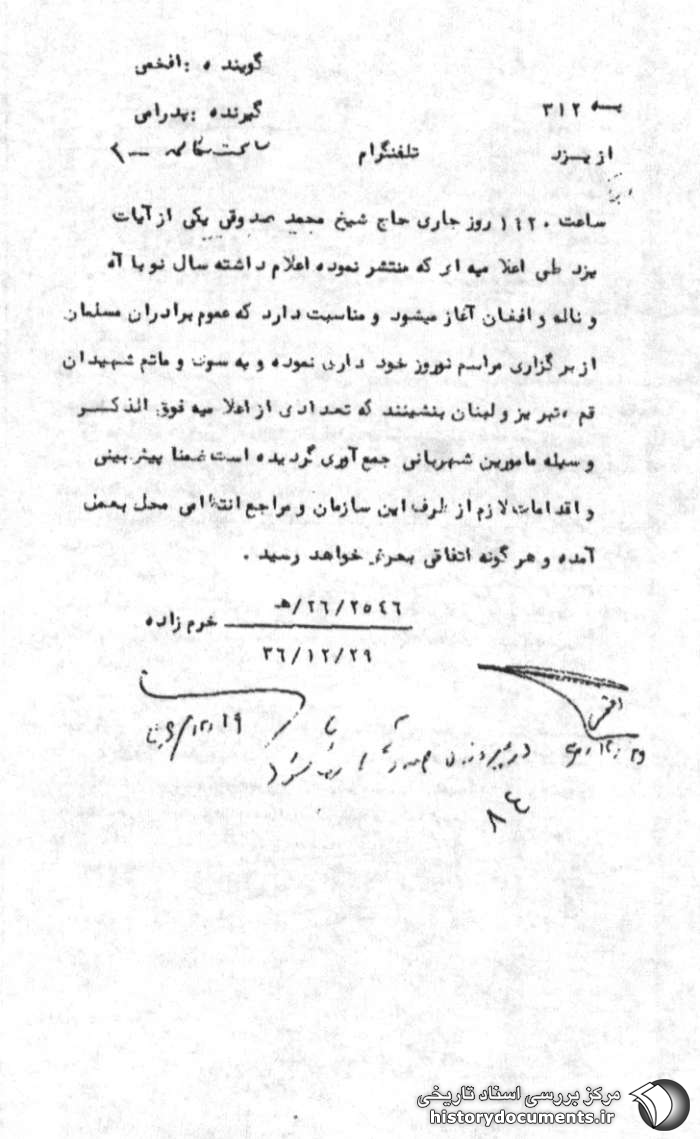 گوینده : افخمی
به ۳۱۲
گیرنده : پدرامی
از یزد
تلفنگرام
ساعت مکالمه
ساعت ۱۱۲۰ روز جاری حاج شیخ محمد صدوقی یکی از آیات
یزد طی اعلامیه ای که منتشر نموده اعلام داشته سال نو با آه
و ناله و افغان آغاز میشود و مناسبت دارد که عموم برادران مسلمان
از برگزاری مراسم نوروز خود داری نموده و به سوک و ماتم شهیدان
قم ، تبریز و لبنان بنشینند که تعدادی از اعلامیه فوق الذکر
وسیله مامورین شهربانی جمع آوری گردیده است ضمنا پیش بینی
و اقدامات لازم از طرف این سازمان و مراجع انتظامی محل بعمل
آمده و هر گونه اتفاقی بعرض خواهد رسید .
۲۵۴۶/۲۶/ه
خرم زاده
۳۶/۱۲/۲۹
در پرونده
۸۴
مرکز بررسی اسناد تاریخی
historydocuments.ir